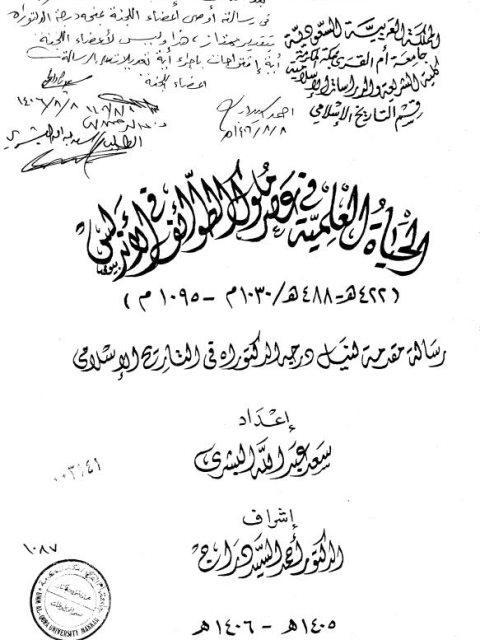 المملكة العربية السعودية
جامعة أم القرى بمكة المكرمة
كلية الشريعة والدراسات الإسلامية
قسم التاريخ الإسلامي
أوصى أعضاء اللجنة
بتقدير ممتاز، هذا وليس لأعضاء اللجنة
أية إقتراحات بإجراء أية تعديلات على الرسالة
أعضاء اللجنة
١٤٠٦/٨/٨
الحياة العلمية في عصر ملوك الطوائف في الأندلس
(٤٢٢هـ-٤٨٨هـ/١٠٣٠م - ١٠٩٥م)
رسالة مقدمة لنيل درجة الدكتوراه في التاريخ الإسلامي
إعداد
سعد عبد الله البشري
٠٠٣١٤١
إشراف
الدكتور أحمد السيد دراج
١٠٨٧
UMM AL-QURA UNIVERSITY MAKKAH
١٤٠٥هـ - ١٤٠٦هـ